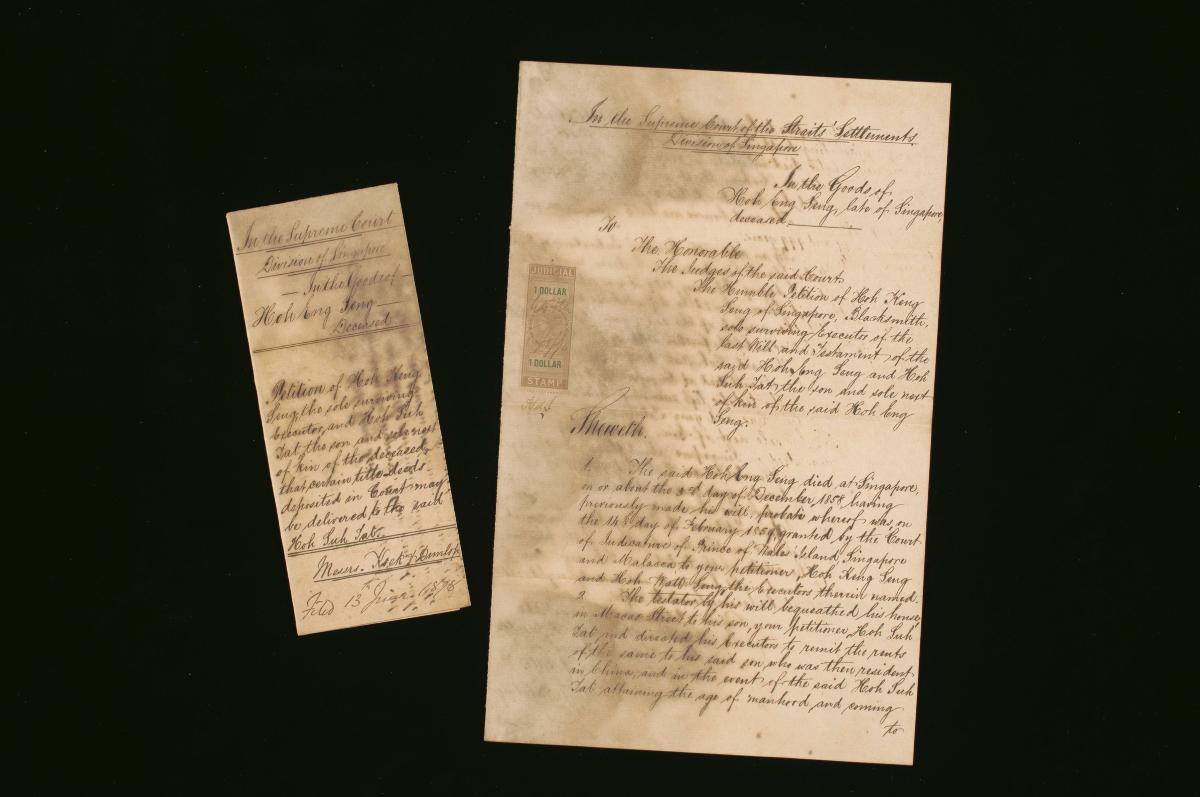 In the Supreme Court
Division of Singapore
In the Goods of
Hoh Eng Seng
Deceased
Petition of Hoh Keng
Seng, the sole surviving
Executor, and Hoh Suh
Tat the son and sole next
of kin of the deceased,
that certain title deeds
deposited in Court may
be delivered to the said
Hoh Suh Tat.
Messrs. & Dunlop
Filed 13th 1878
In the Supreme Court of the Straits' Settlements
Division of Singapore
In the Goods of
Hoh Eng Seng, late of Singapore,
deceased.
To
The Honorable
The Judges of the said Court
The Humble Petition of Hoh Keng
Seng of Singapore, Blacksmith,
sole surviving Executor of the
last Will and Testament of the
said Hoh Eng Seng and Hoh
Suh Tat, the son and sole next
of kin of the said Hoh Eng
Seng.
JUDICIAL
1 DOLLAR
1 DOLLAR
STAMP
Sheweth.
1. The said Hoh Eng Seng died at Singapore,
on or about the 3rd day of December 1858 having
previously made his will, probate whereof was, on
the 14th day of February granted by the Court
of Judicature of Prince of Wales Island, Singapore
and Malacca to your petitioner, Hoh Keng Seng
and Hoh Watt Seng, the Executors therein named.
2. The testator by his will bequeathed his house
in Macao Street to his son, your petitioner Hoh Suh
Tat and directed his Executors to remit the rents
of the same to his said son who was then resident
in China, and in the event of the said Hoh Suh
Tat attaining the age of manhood and coming
to